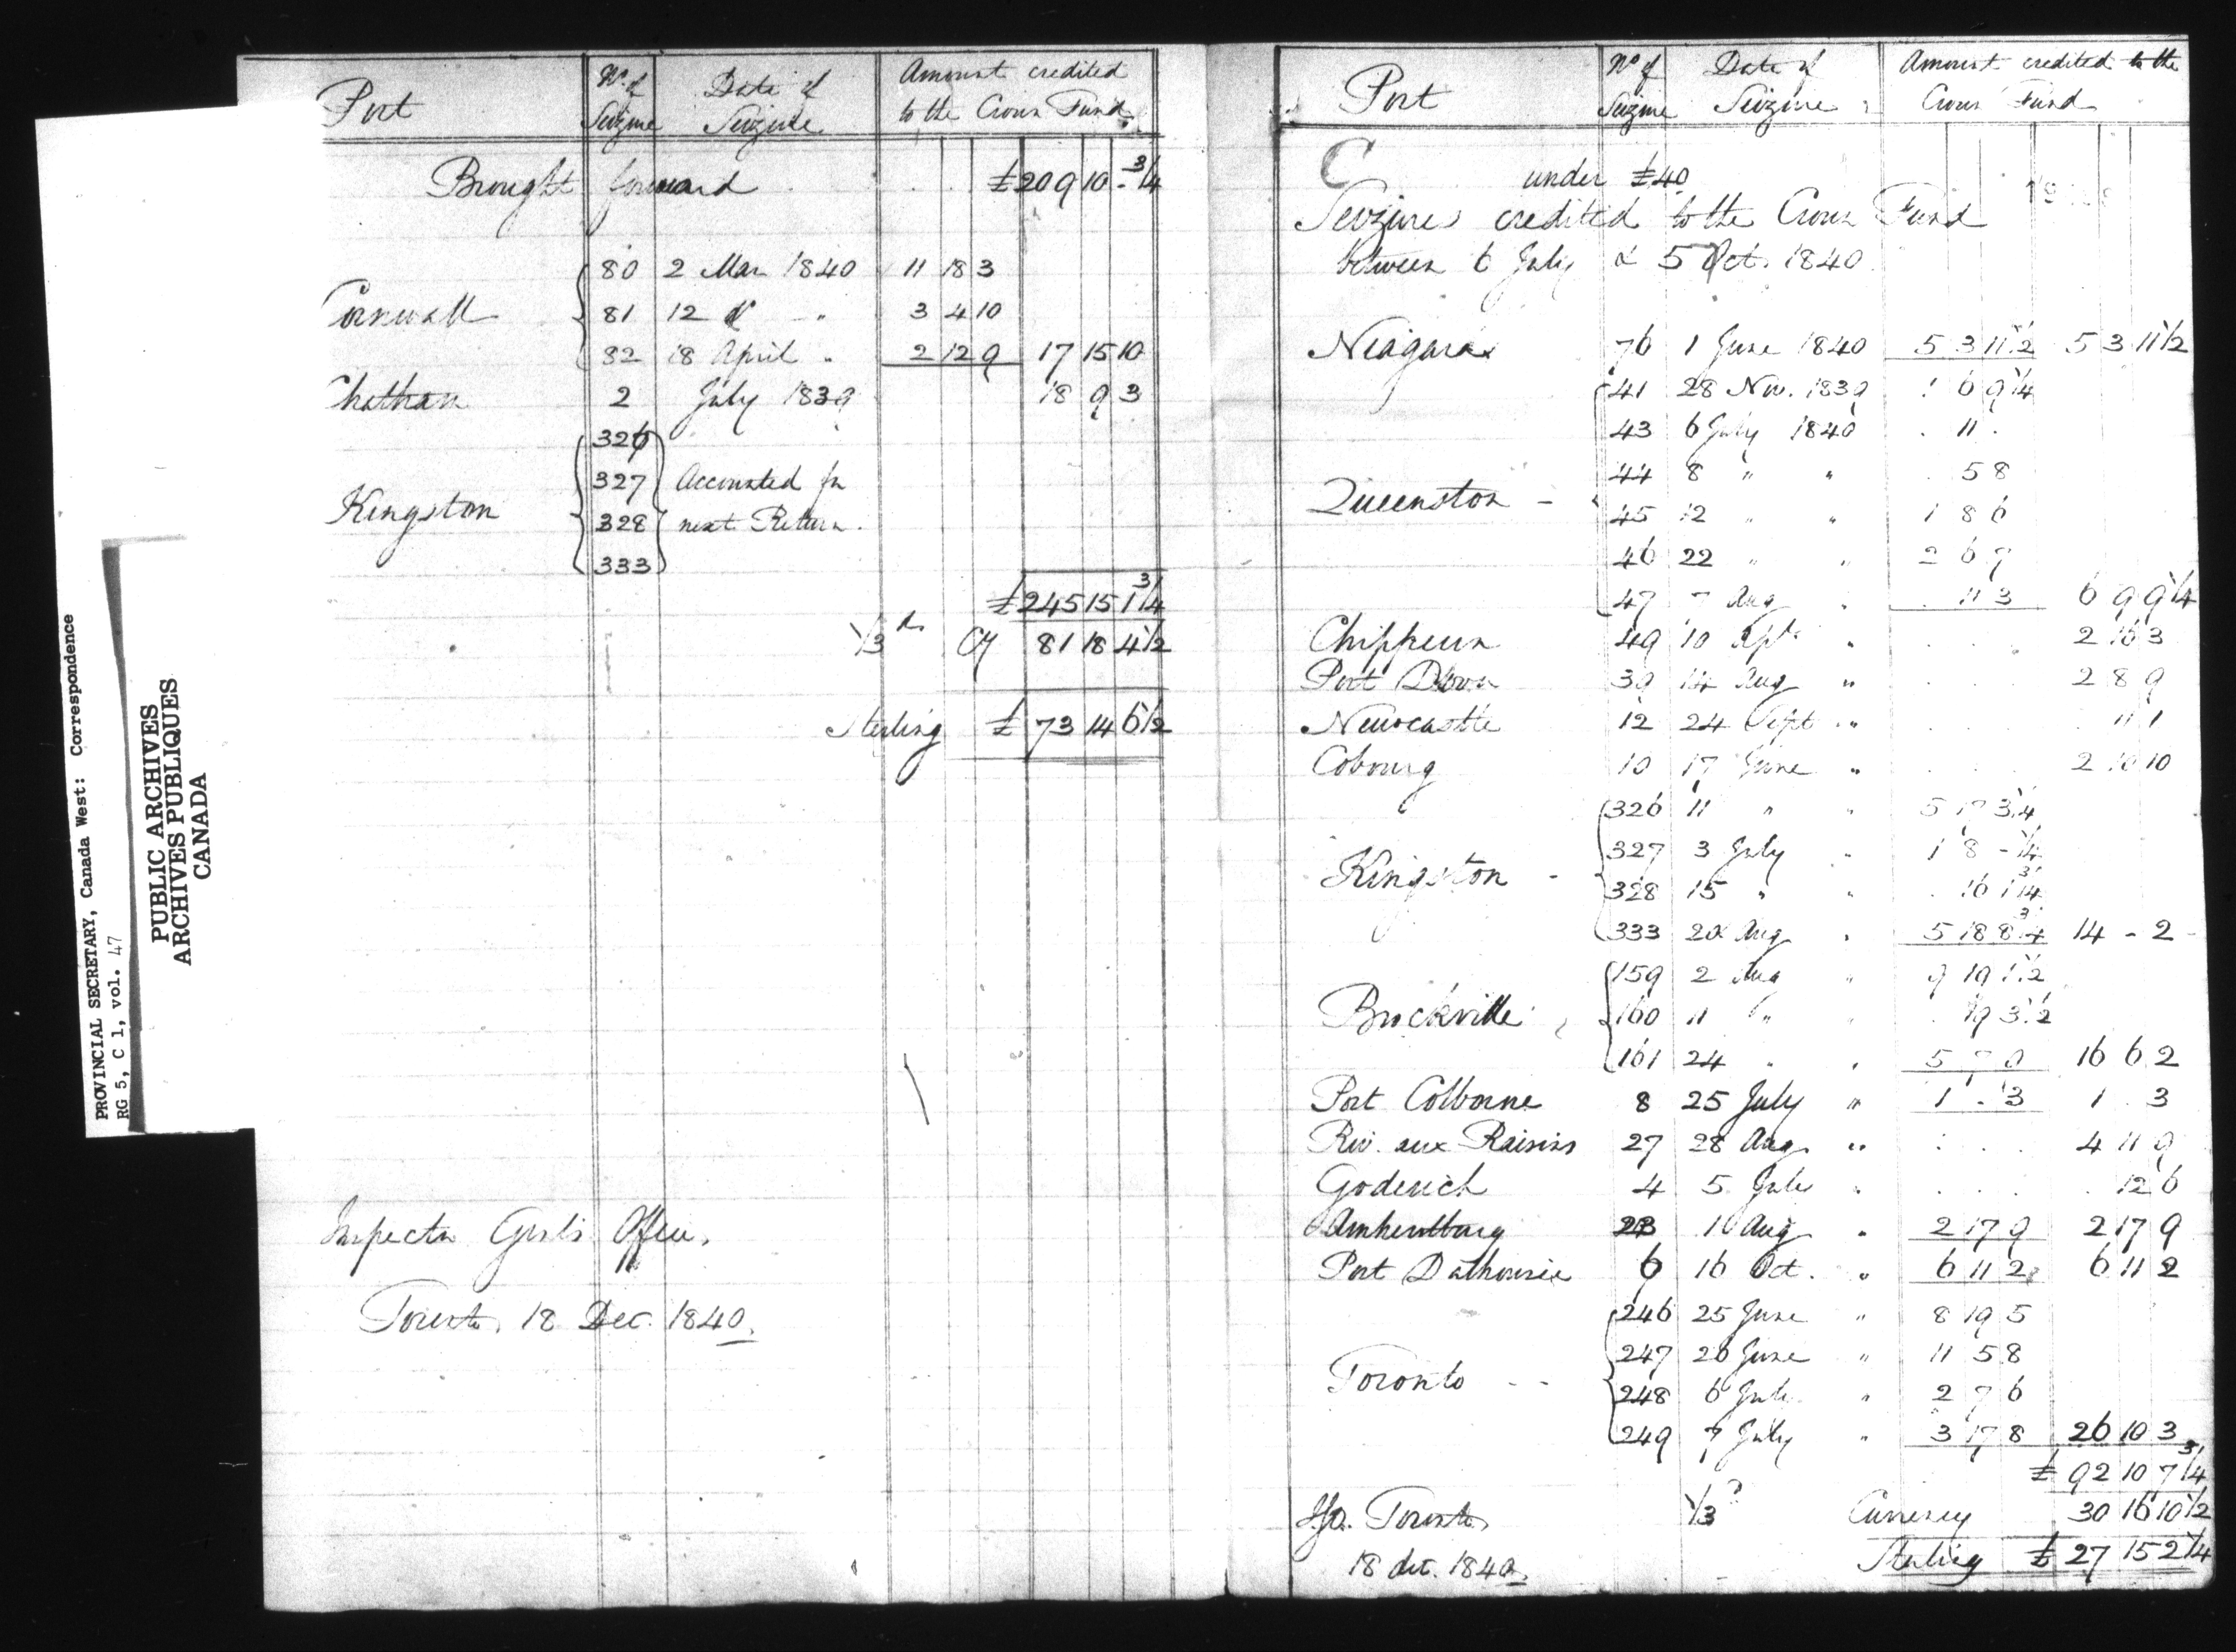 PROVINCIAL SECRETARY, Canada West: Correspondence
RG 5, C 1, vol. 47
PUBLIC ARCHIVES
ARCHIVES PUBLIQUES
CANADA
Port No. of Seizure Date of Seizure Amount credited to the Crown Fund
Brought forward £ 209 10 - 3/4
Cornwall 80 2 Mar 1840 11 18 3
81 12 " 3 4 10
82 18 April " 2 12 9 17 15 10
Chatham 2 July 1839 18 9 3
Kingston 326
327 Accounted for
328 next Return.
333
£ 245 15 1 3/4
1/3 Cy 81 18 4 1/2
Sterling £ 73 14 6 1/2
Inspector Genl's Office,
Toronto, 18 Dec. 1840.
Port No. of Seizure Date of Seizure Amount credited to the Crown Fund
C under £40
Seizures credited to the Crown Fund
between 6 July & 5 Oct. 1840
Niagara 76 1 June 1840 5 3 11 1/2 5 3 11 1/2
41 28 Nov. 1839 . 6 9 1/4
43 6 July 1840 . 11 .
44 8 " " . 5 8
Queenston - 45 12 " " 1 8 6
46 22 " " 2 6 7
47 7 Aug " . 11 3 6 9 9 1/4
Chippewa 49 10 Sept " . . . 2 16 3
Port Dover 39 14 Aug " . . . 2 8 9
Newcastle 12 24 Sept " . . . . 11 1
Cobourg 10 17 June " . . . 2 10 10
326 11 " " 5 17 3 1/4
327 3 July " 1 8 - 1/4
Kingston - 328 15 " " . 16 1 3/4
333 20 Aug " 5 18 8 3/4 14 - 2 -
159 2 Aug " 9 19 1/2
Brockville 160 11 " " . 19 3 1/2
161 24 " " 5 7 9 16 6 2
Port Colborne 8 25 July " 1 . 3 1 . 3
Riv. aux Raisins 27 28 Aug " . . . 4 11 9
Goderich 4 5 July " . . . . 12 6
Amherstburg 23 10 Aug " 2 17 9 2 17 9
Port Dalhousie 6 16 Oct. " 6 11 2 6 11 2
246 25 June " 8 19 5
247 26 June " 11 5 8
Toronto - - 248 6 July " 2 7 6
249 7 July " 3 17 8 26 10 3
£ 92 10 7 3/4
Toronto, 1/3 Currency 30 16 10 1/2
18 dec. 1840. Sterling £ 27 15 2 1/4